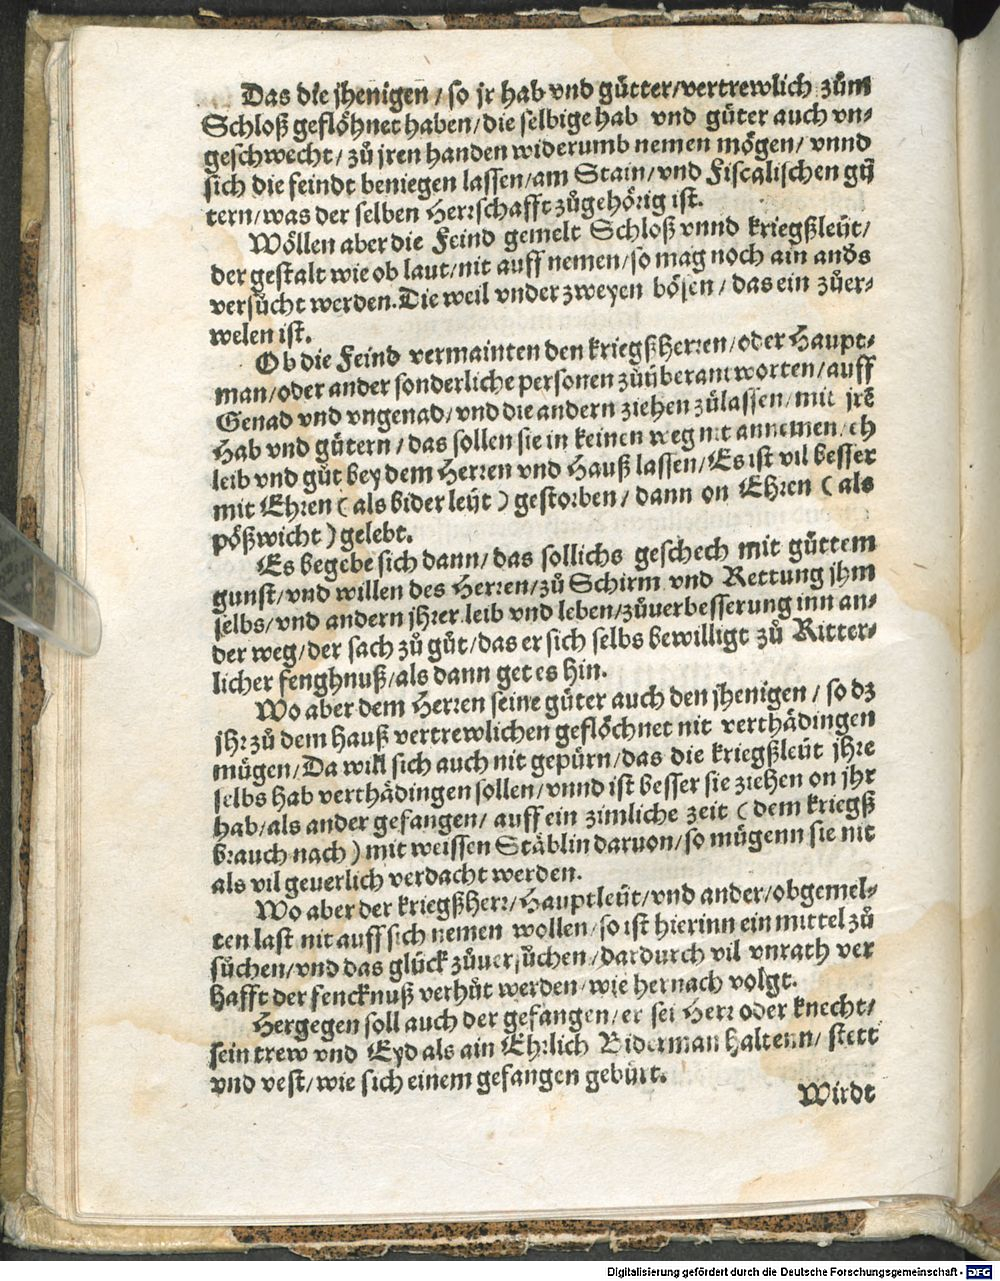 Das die jhenigen / so jr hab vnd gütter/vertrewlich zům
Schloß geflöhnet haben/die selbige hab vnd güter auch vn-
geschwecht/ zů jren handen widerumb nemen mögen/ vnnd
sich die feindt beniegen lassen/am Stain/vnd Fiscalischen gü
tern/was der selben Herrschafft zůgehörig ist.
Wöllen aber die Feind gemelt Schloß vnnd kriegßleüt/
der gestalt wie ob laut/nit auff nemen/so mag noch ain anders
versůcht werden. Die weil vnder zweyen bösen / das ein zůer-
welen ist.
Ob die Feind vermainten den kriegßHerren/oder Haupt-
man/oder ander sonderliche personen zůüberantworten/auff
Genad vnd vngenad/vnd die andern ziehen zůlassen/mit jrē
Hab vnd gütern / das sollen sie in keinen weg nit annemen/eh
leib vnd gůt bey dem Herren vnd Hauß lassen/Es ist vil besser
mit Ehren ( als bider leüt ) gestorben/ dann on Ehren ( als
pößwicht ) gelebt.
Es begebe sich dann/das sollichs geschech mit gůttem
gunst/vnd willen des Herren/zů Schirm vnd Rettung jhm
selbs/vnd andern jhrer leib vnd leben/zůverbesserung inn an-
der weg/der sach zů gůt/das er sich selbs bewilligt zů Ritter-
licher fenghnuß/als dann get es hin.
Wo aber dem Herren seine güter auch den jhenigen / so dz
jhr zů dem hauß vertrewlichen geflöchnet nit verthädingen
mügen/Da will sich auch nit gepürn/das die kriegßleüt jhre
selbs hab verthädingen sollen/vnnd ist besser sie ziehen on jhr
hab/als ander gefangen/ auff ein zimliche zeit ( dem kriegß
brauch nach ) mit weissen Stäblin daruon/so mügenn sie nit
als vil geuerlich verdacht werden.
Wo aber der kriegßHerr/Hauptleüt/vnd ander/obgemel-
ten last nit auff sich nemen wollen/so ist hierinn ein mittel zů
sůchen/vnd das glück zůuersůchen/dardurch vil vnrath ver
hafft der fencknuß verhůt werden/wie hernach volgt.
Hergegen soll auch der gefangen/er sei Herr oder knecht/
sein trew vnd Eyd als ain Ehrlich Biderman haltenn/ stett
vnd vest/wie sich einem gefangen gebürt.
Wirdt
Digitalisierung gefördert durch die Deutsche Forschungsgemeinschaft - DFG